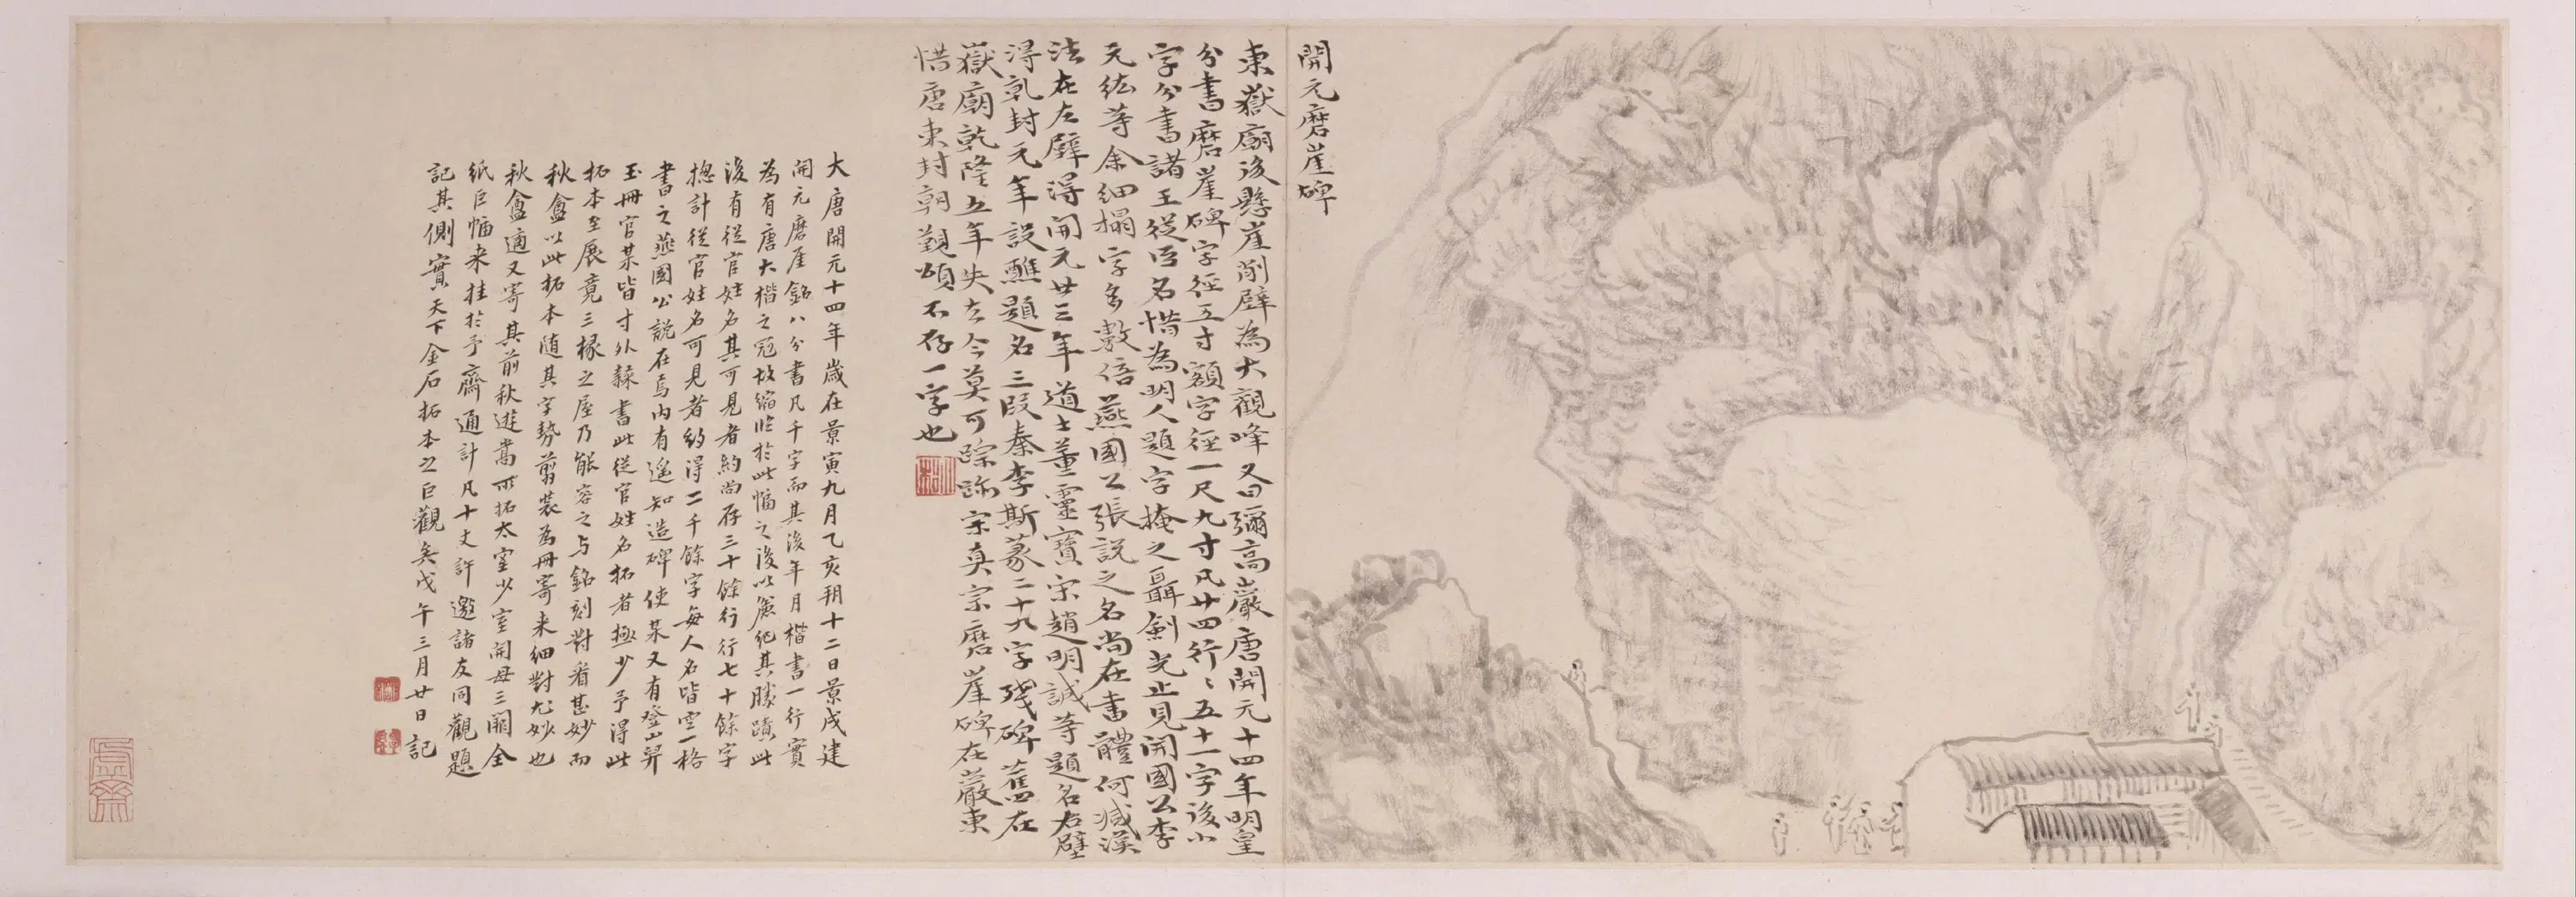 開元磨崖碑
東嶽廟後懸崖削壁為大觀峰又曰彌高巖唐開元十四年明皇
分書磨崖碑字徑五寸額字徑一尺九寸凡廿四行〻五十一字後小
字分書諸王從臣名惜為明人題字掩之聶劍光止見開國公李
元紘等余細搨字多數倍燕國公張說之名尚在書體何減漢
法在左壁得開元廿三年道士董靈寶宋趙明誠等題名右壁
得乹封元年設醮題名三段秦李斯篆二十九字殘碑舊在
嶽廟乾隆五年失去今莫可踪跡宋真宗磨崖碑在巖東
惜唐東封朝覲頌不存一字也
大唐開元十四年歲在景寅九月乙亥朔十二日景戌建
開元磨厓銘八分書凡千字而其後年月楷書一行實
為有唐大楷之冠故縮臨於此幅之後以豔絕其勝蹟此
後有從官姓名其可見者約尚存三十餘行行七十餘字
揔計從官姓名可見者約得二千餘字每人名皆空一格
書之燕國公說在焉內有遙知造碑使某又有登山舁
玉冊官某皆寸外隸書此從官姓名拓者極少予得此
拓本至展竟三椽之屋乃能容之与銘刻對看甚妙而
秋盦以此拓本随其字勢翦裝為冊寄来細對尤妙也
秋盦適又寄其前秋遊嵩所拓太室少室開母三闕全
紙巨幅来挂於予齋通計凡十丈許邀諸友同觀題
記其側實天下金石拓本之巨觀矣戊午三月廿日記